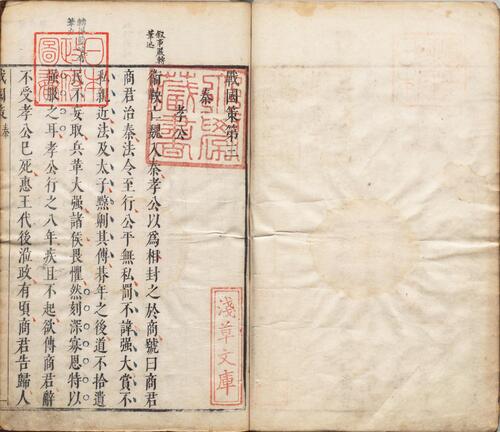 戰國策第三
秦
孝公
衛鞅亡魏入秦孝公以爲相封之於商號曰商君
商君治秦法令至行公平無私罰不諱强大賞不
私親近法及太子黥劓其傅朞年之後道不拾遺
民不妄取兵革大强諸侯畏懼然刻深寡恩特以
强服之耳孝公行之八年疾且不起欲傳商君辭
不受孝公已死惠王代後涖政有頃商君告歸人
戰國策 秦
淺草文庫